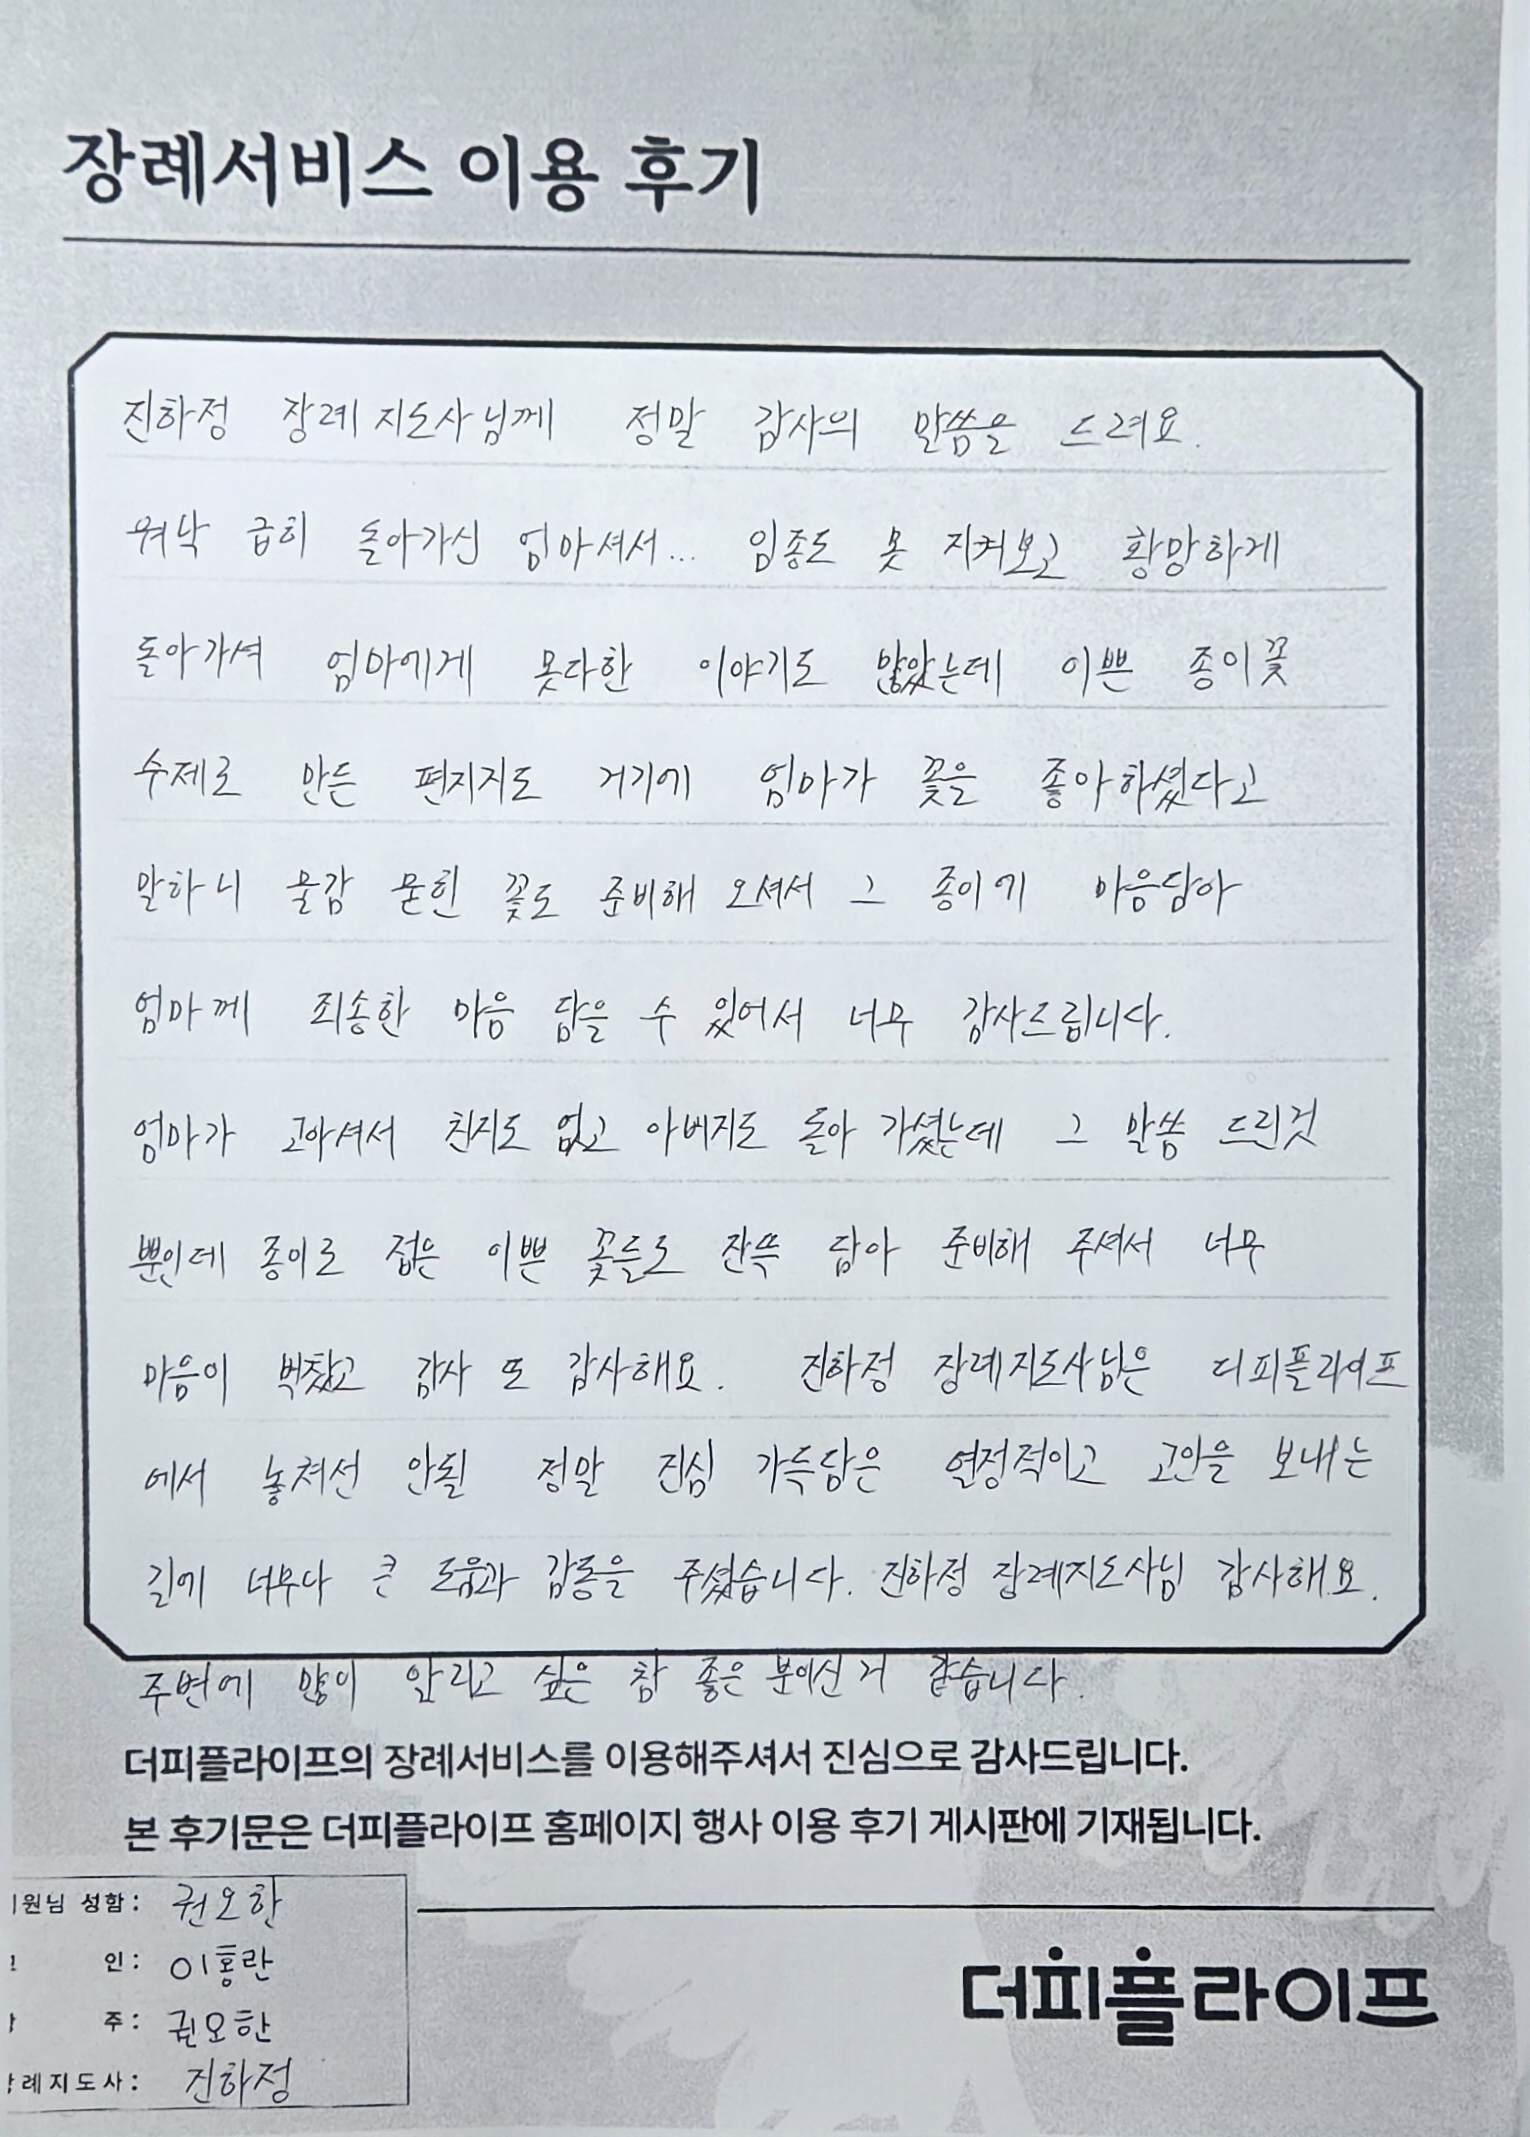 장례서비스 이용 후기
진하정 장례지도사님께 정말 감사의 말씀을 드려요.
워낙 급히 돌아가신 엄마셔서... 임종도 못 지켜보고 황망하게
돌아가셔 엄마에게 못다한 이야기도 많았는데 이쁜 종이꽃
수제로 만든 편지지도 거기에 엄마가 꽃을 좋아하셨다고
말하니 물감 묻힌 꽃도 준비해 오셔서 그 종이에 마음담아
엄마께 죄송한 마음 담을 수 있어서 너무 감사드립니다.
엄마가 고아셔서 친지도 없고 아버지도 돌아 가셨는데 그 말씀 드린것
뿐인데 종이로 접은 이쁜 꽃들로 잔뜩 담아 준비해 주셔서 너무
마음이 벅찼고 감사 또 감사해요. 진하정 장례지도사님은 더피플라이프
에서 놓쳐선 안될 정말 진심 가득담은 열정적이고 고인을 보내는
길에 너무나 큰 도움과 감동을 주셨습니다. 진하정 장례지도사님 감사해요.
주변에 많이 알리고 싶은 참 좋은 분이신 거 같습니다.
더피플라이프의 장례서비스를 이용해주셔서 진심으로 감사드립니다.
본 후기문은 더피플라이프 홈페이지 행사 이용 후기 게시판에 기재됩니다.
원님 성함: 권오한
인: 이홍란
주: 권오한
례지도사: 진하정
더피플라이프